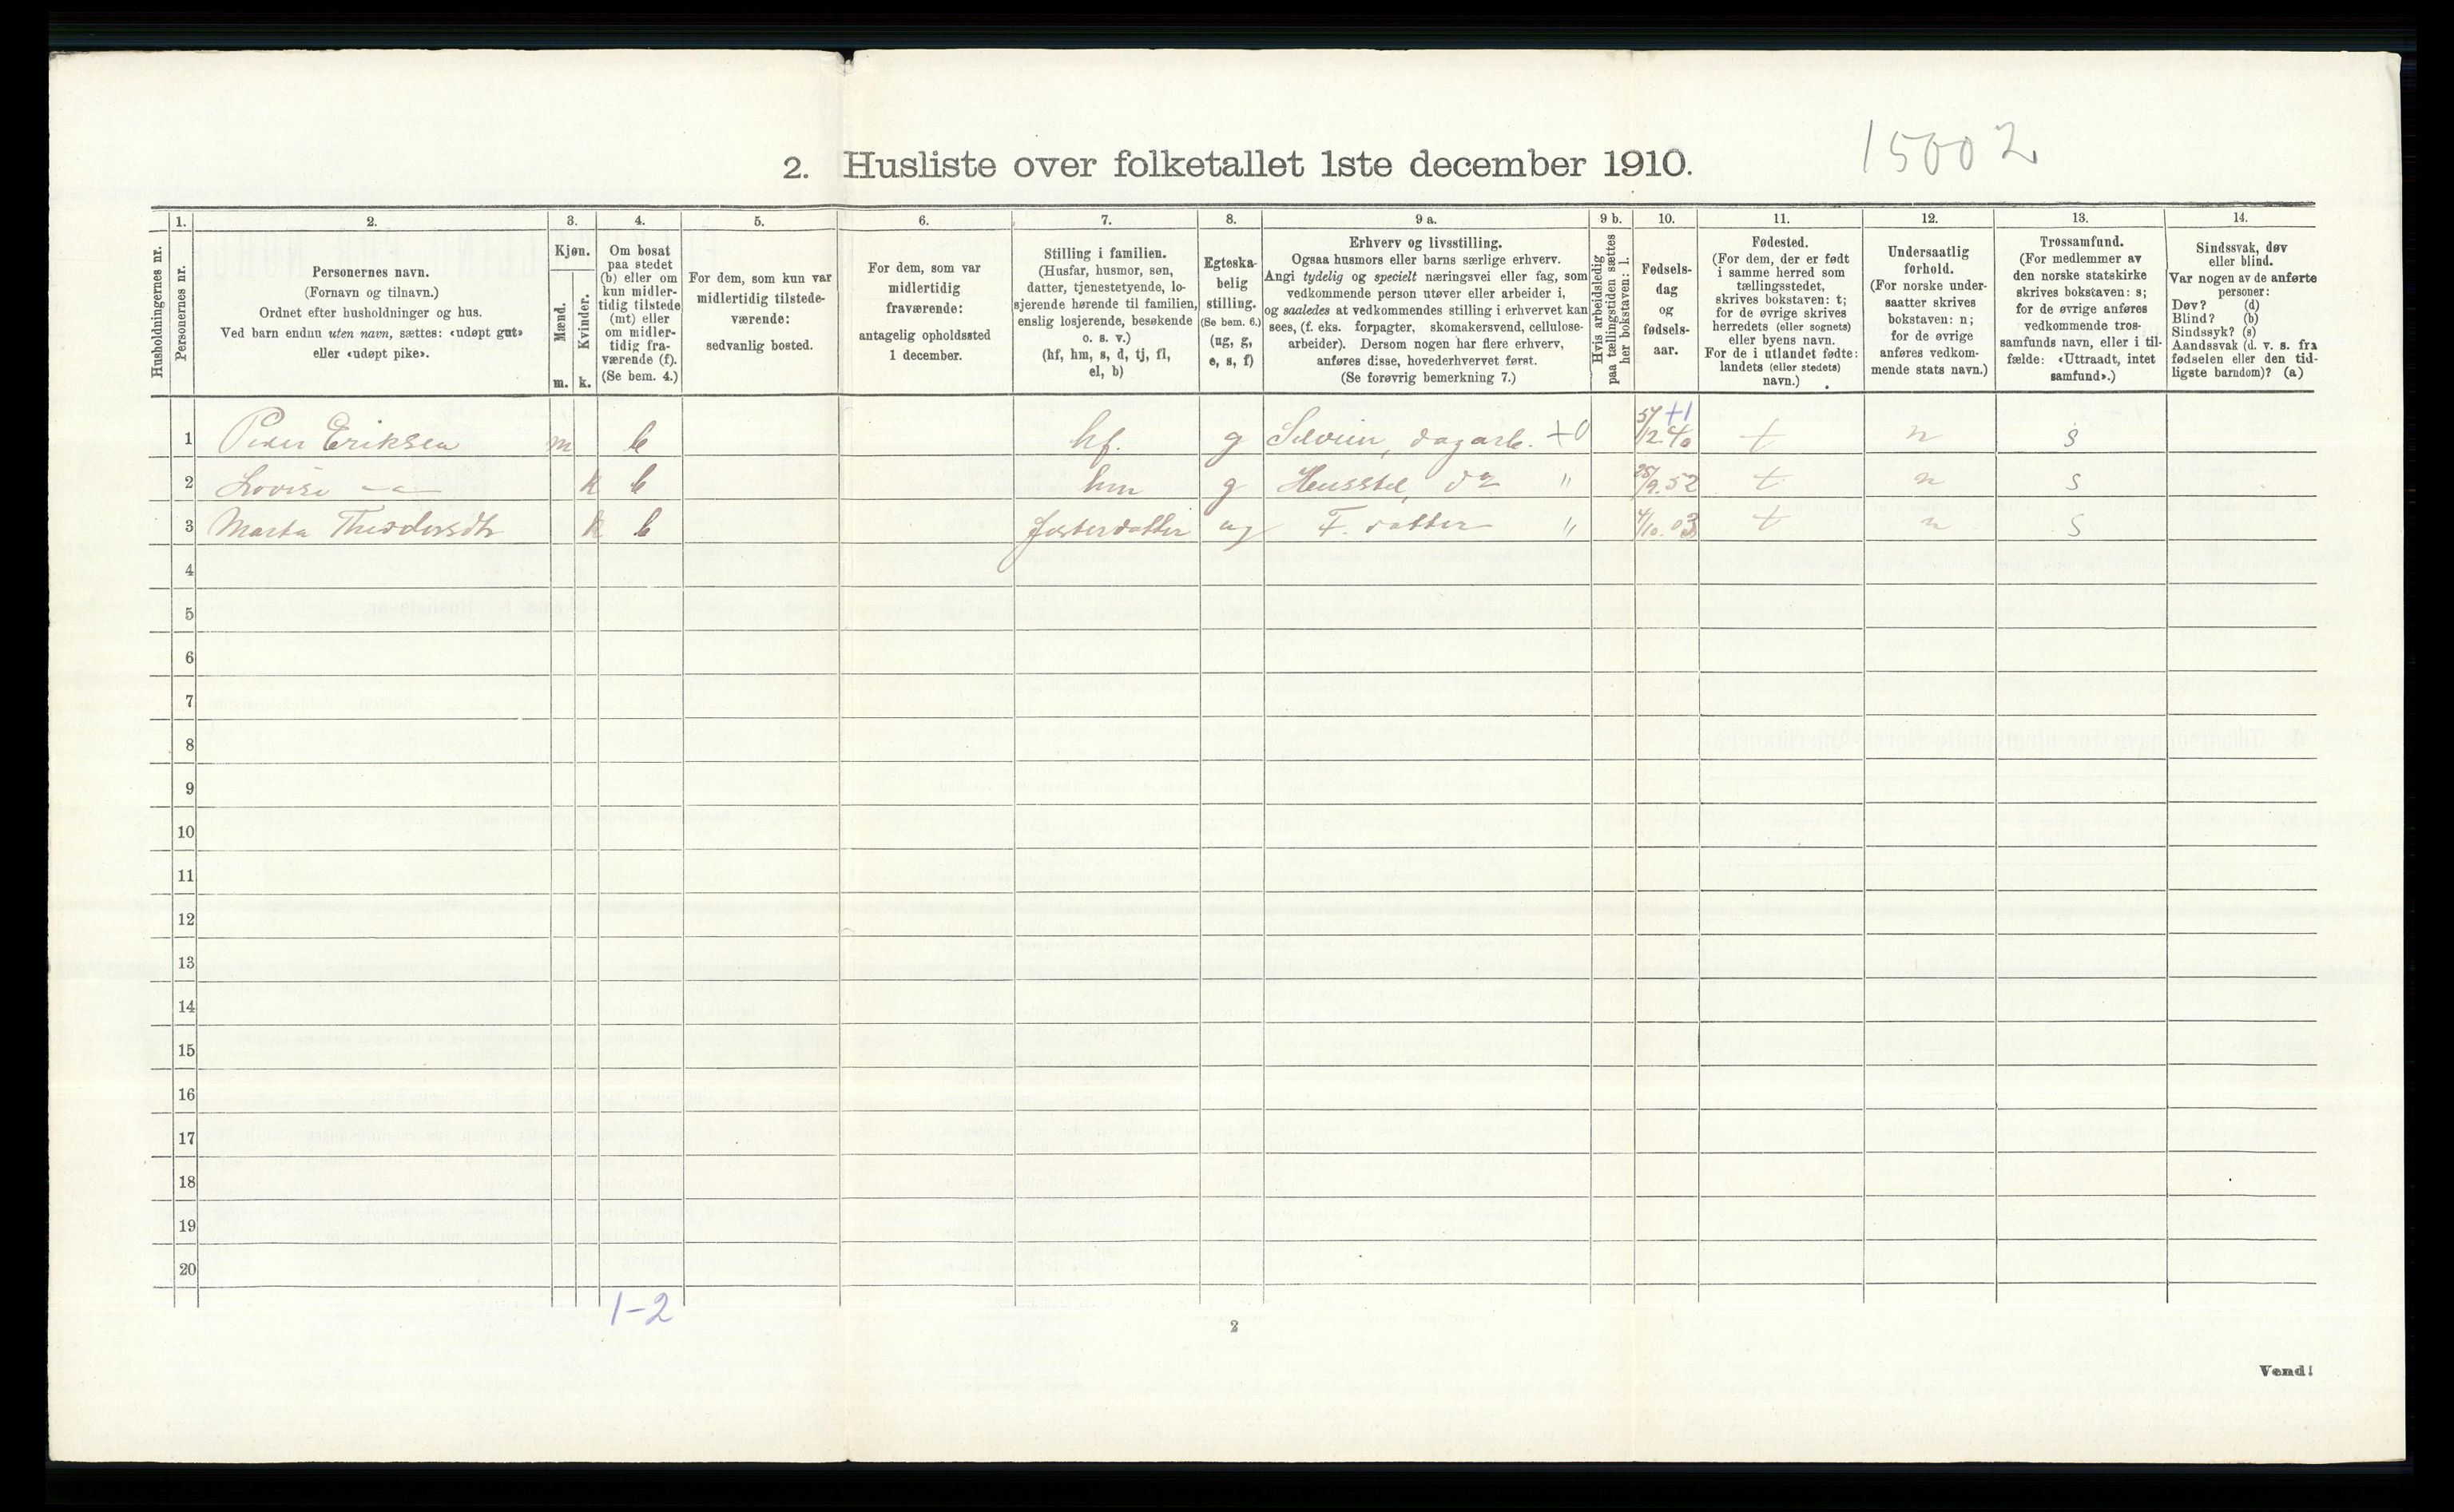 2. Husliste over folketallet 1ste december 1910.
15002
1. 2. 3. 4. 5. 6. 7. 8. 9 a. 9 b. 10. 11. 12. 13. 14.
Husholdningernes nr.
Personernes nr.
Personernes navn.
(Fornavn og tilnavn.)
Ordnet efter husholdninger og hus.
Ved barn endnu uten navn, sættes: «udøpt gut»
eller «udøpt pike».
Kjøn.
Mænd.
Kvinder.
m. k.
Om bosat
paa stedet
(b) eller om
kun midler-
tidig tilstede
(mt) eller
om midler-
tidig fra-
værende (f).
(Se bem. 4.)
For dem, som kun var
midlertidig tilstede-
værende:
sedvanlig bosted.
For dem, som var
midlertidig
fraværende:
antagelig opholdssted
1 december.
Stilling i familien.
(Husfar, husmor, søn,
datter, tjenestetyende, lo-
sjerende hørende til familien,
enslig losjerende, besøkende
o. s. v.)
(hf, hm, s, d, tj, fl,
el, b)
Egteska-
belig
stilling.
(Se bem. 6.)
(ug, g,
e, s, f)
Erhverv og livsstilling.
Ogsaa husmors eller barns særlige erhverv.
Angi tydelig og specielt næringsvei eller fag, som
vedkommende person utøver eller arbeider i,
og saaledes at vedkommendes stilling i erhvervet kan
sees, (f. eks. forpagter, skomakersvend, cellulose-
arbeider). Dersom nogen har flere erhverv,
anføres disse, hovederhvervet først.
(Se forøvrig bemerkning 7.)
Hvis arbeidsledig
paa tællingstiden sættes
her bokstaven: l.
Fødsels-
dag
og
fødsels-
aar.
Fødested.
(For dem, der er født
i samme herred som
tællingsstedet,
skrives bokstaven: t;
for de øvrige skrives
herredets (eller sognets)
eller byens navn.
For de i utlandet fødte:
landets (eller stedets)
navn.)
Undersaatlig
forhold.
(For norske under-
saatter skrives
bokstaven: n;
for de øvrige
anføres vedkom-
mende stats navn.)
Trossamfund.
(For medlemmer av
den norske statskirke
skrives bokstaven: s;
for de øvrige anføres
vedkommende tros-
samfunds navn, eller i til-
fælde: «Uttraadt, intet
samfund».)
Sindssvak, døv
eller blind.
Var nogen av de anførte
personer:
Døv? (d)
Blind? (b)
Sindssyk? (s)
Aandssvak (d. v. s. fra
fødselen eller den tid-
ligste barndom)? (a)
1 Peder Eriksen m b hf. g dagarb. +0 +1 t n s
2 Lovise k b hm g Husstel, " 9. 52 t n s
3 Marta k b fosterdatter ug F. datter " 4/10. 03 t n s
4
5
6
7
8
9
10
11
12
13
14
15
16
17
18
19
20
1-2
2
Vend!